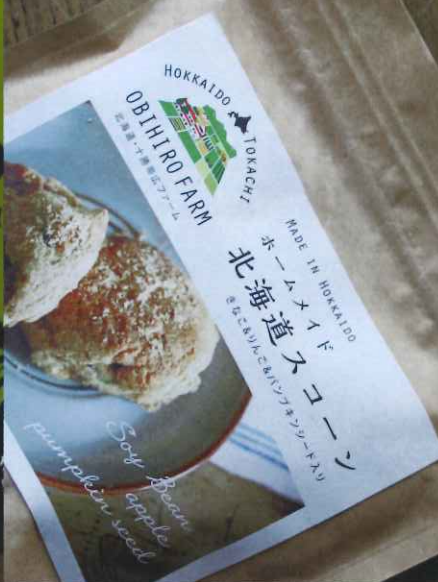 HOKKAIDO TOKACHI
OBIHIRO FARM
北海道・十勝帯広ファーム
MADE IN HOKKAIDO
ホームメイド
北海道スコーン
きなこ&りんご&パンプキンシード入り
Soy Bean
apple
pumpkin seed